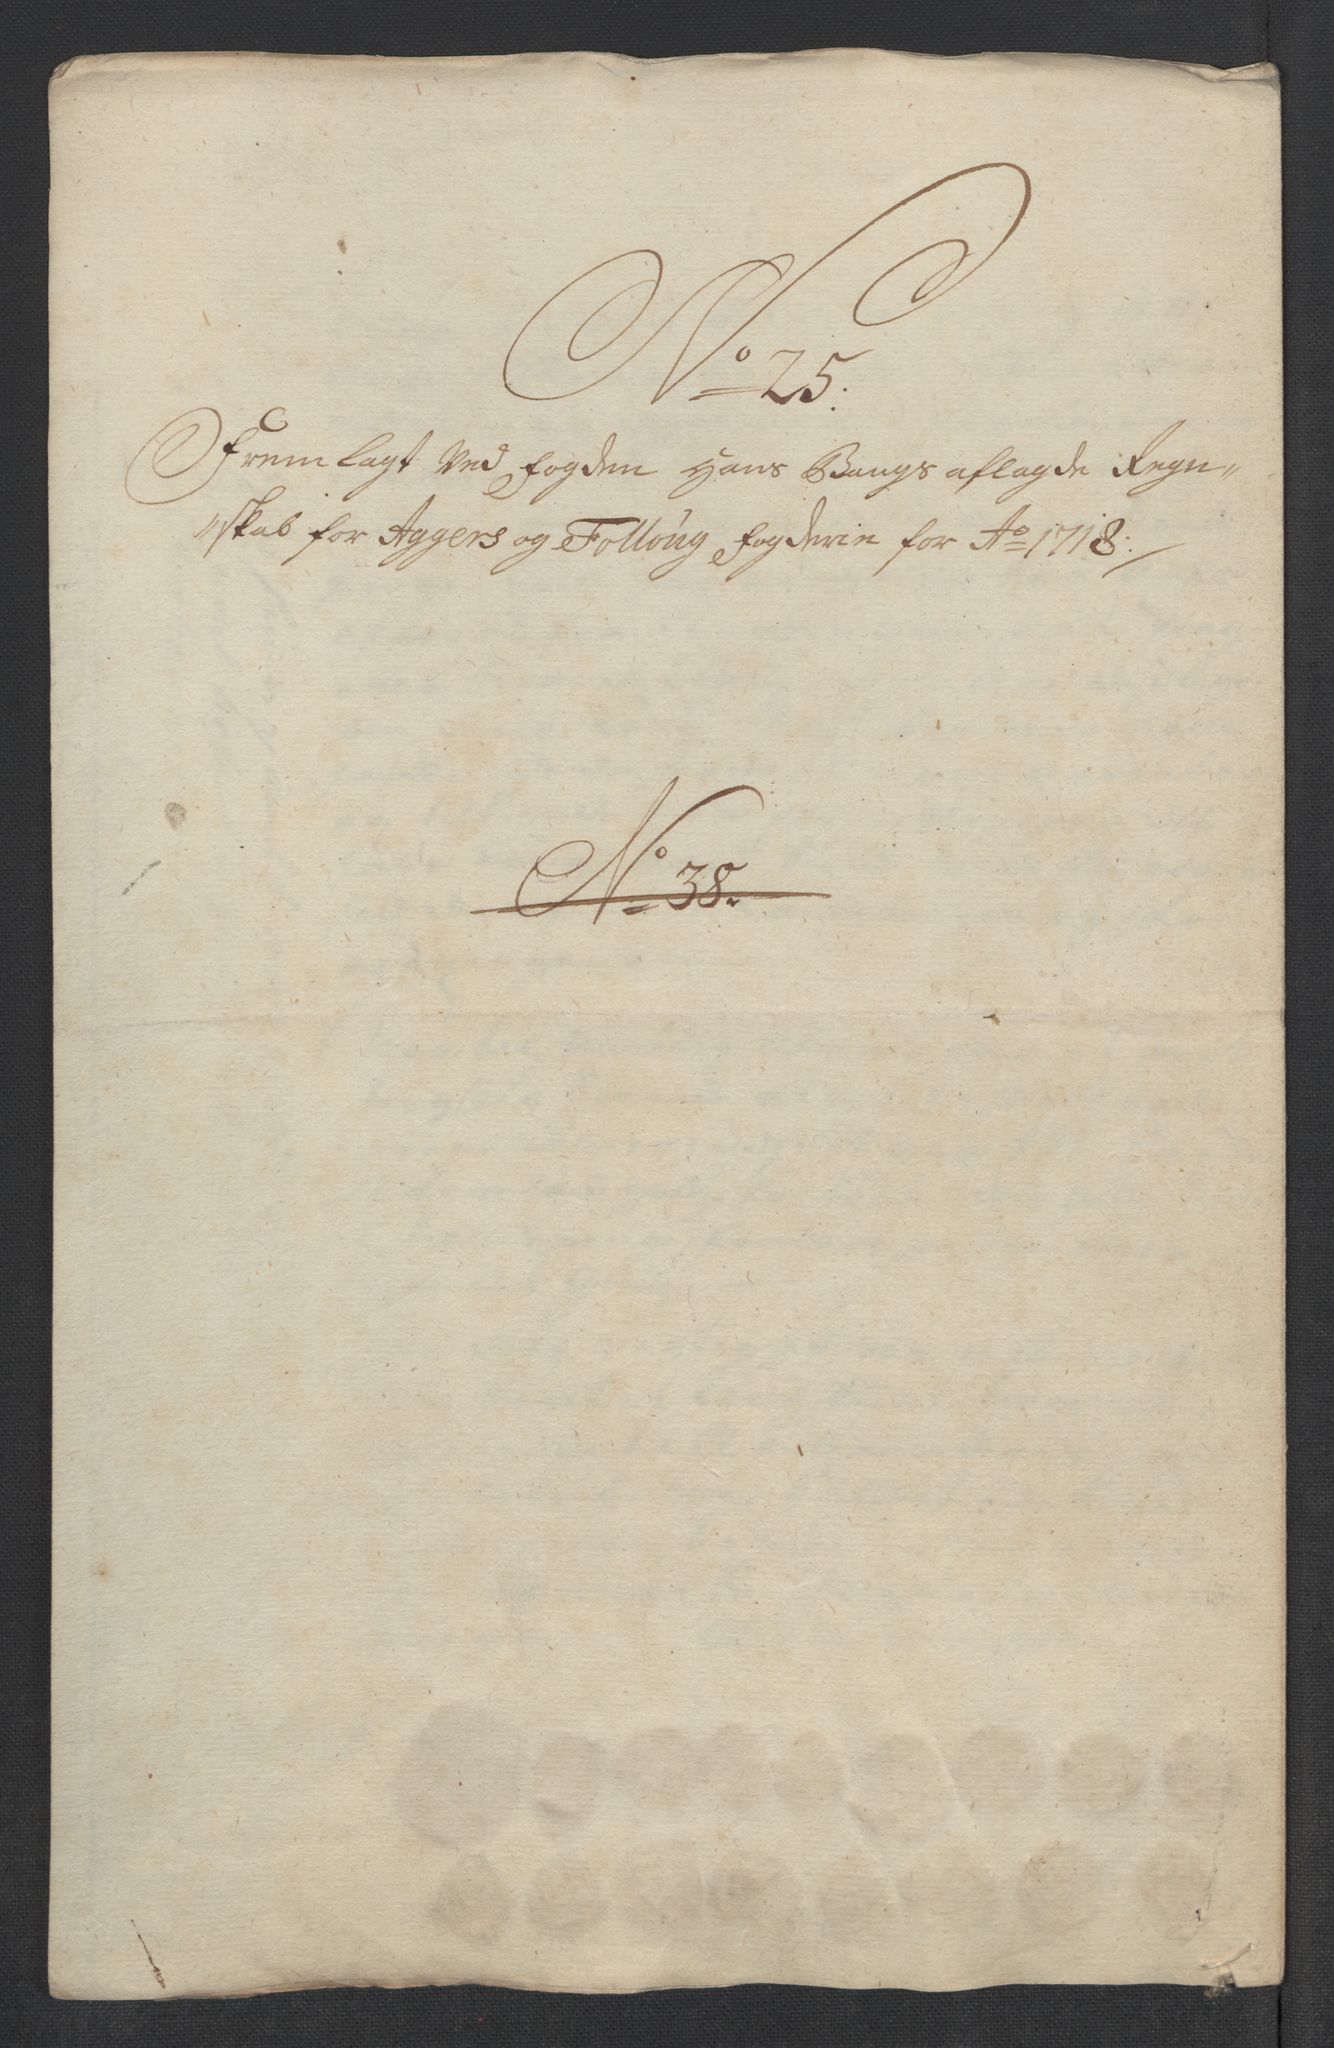 No 25.
Fremlagt Ved fogden Hans Bangs aflagde Regn-
skab for Aggers og Folloug fogderie for Ao 1718.
No 38.